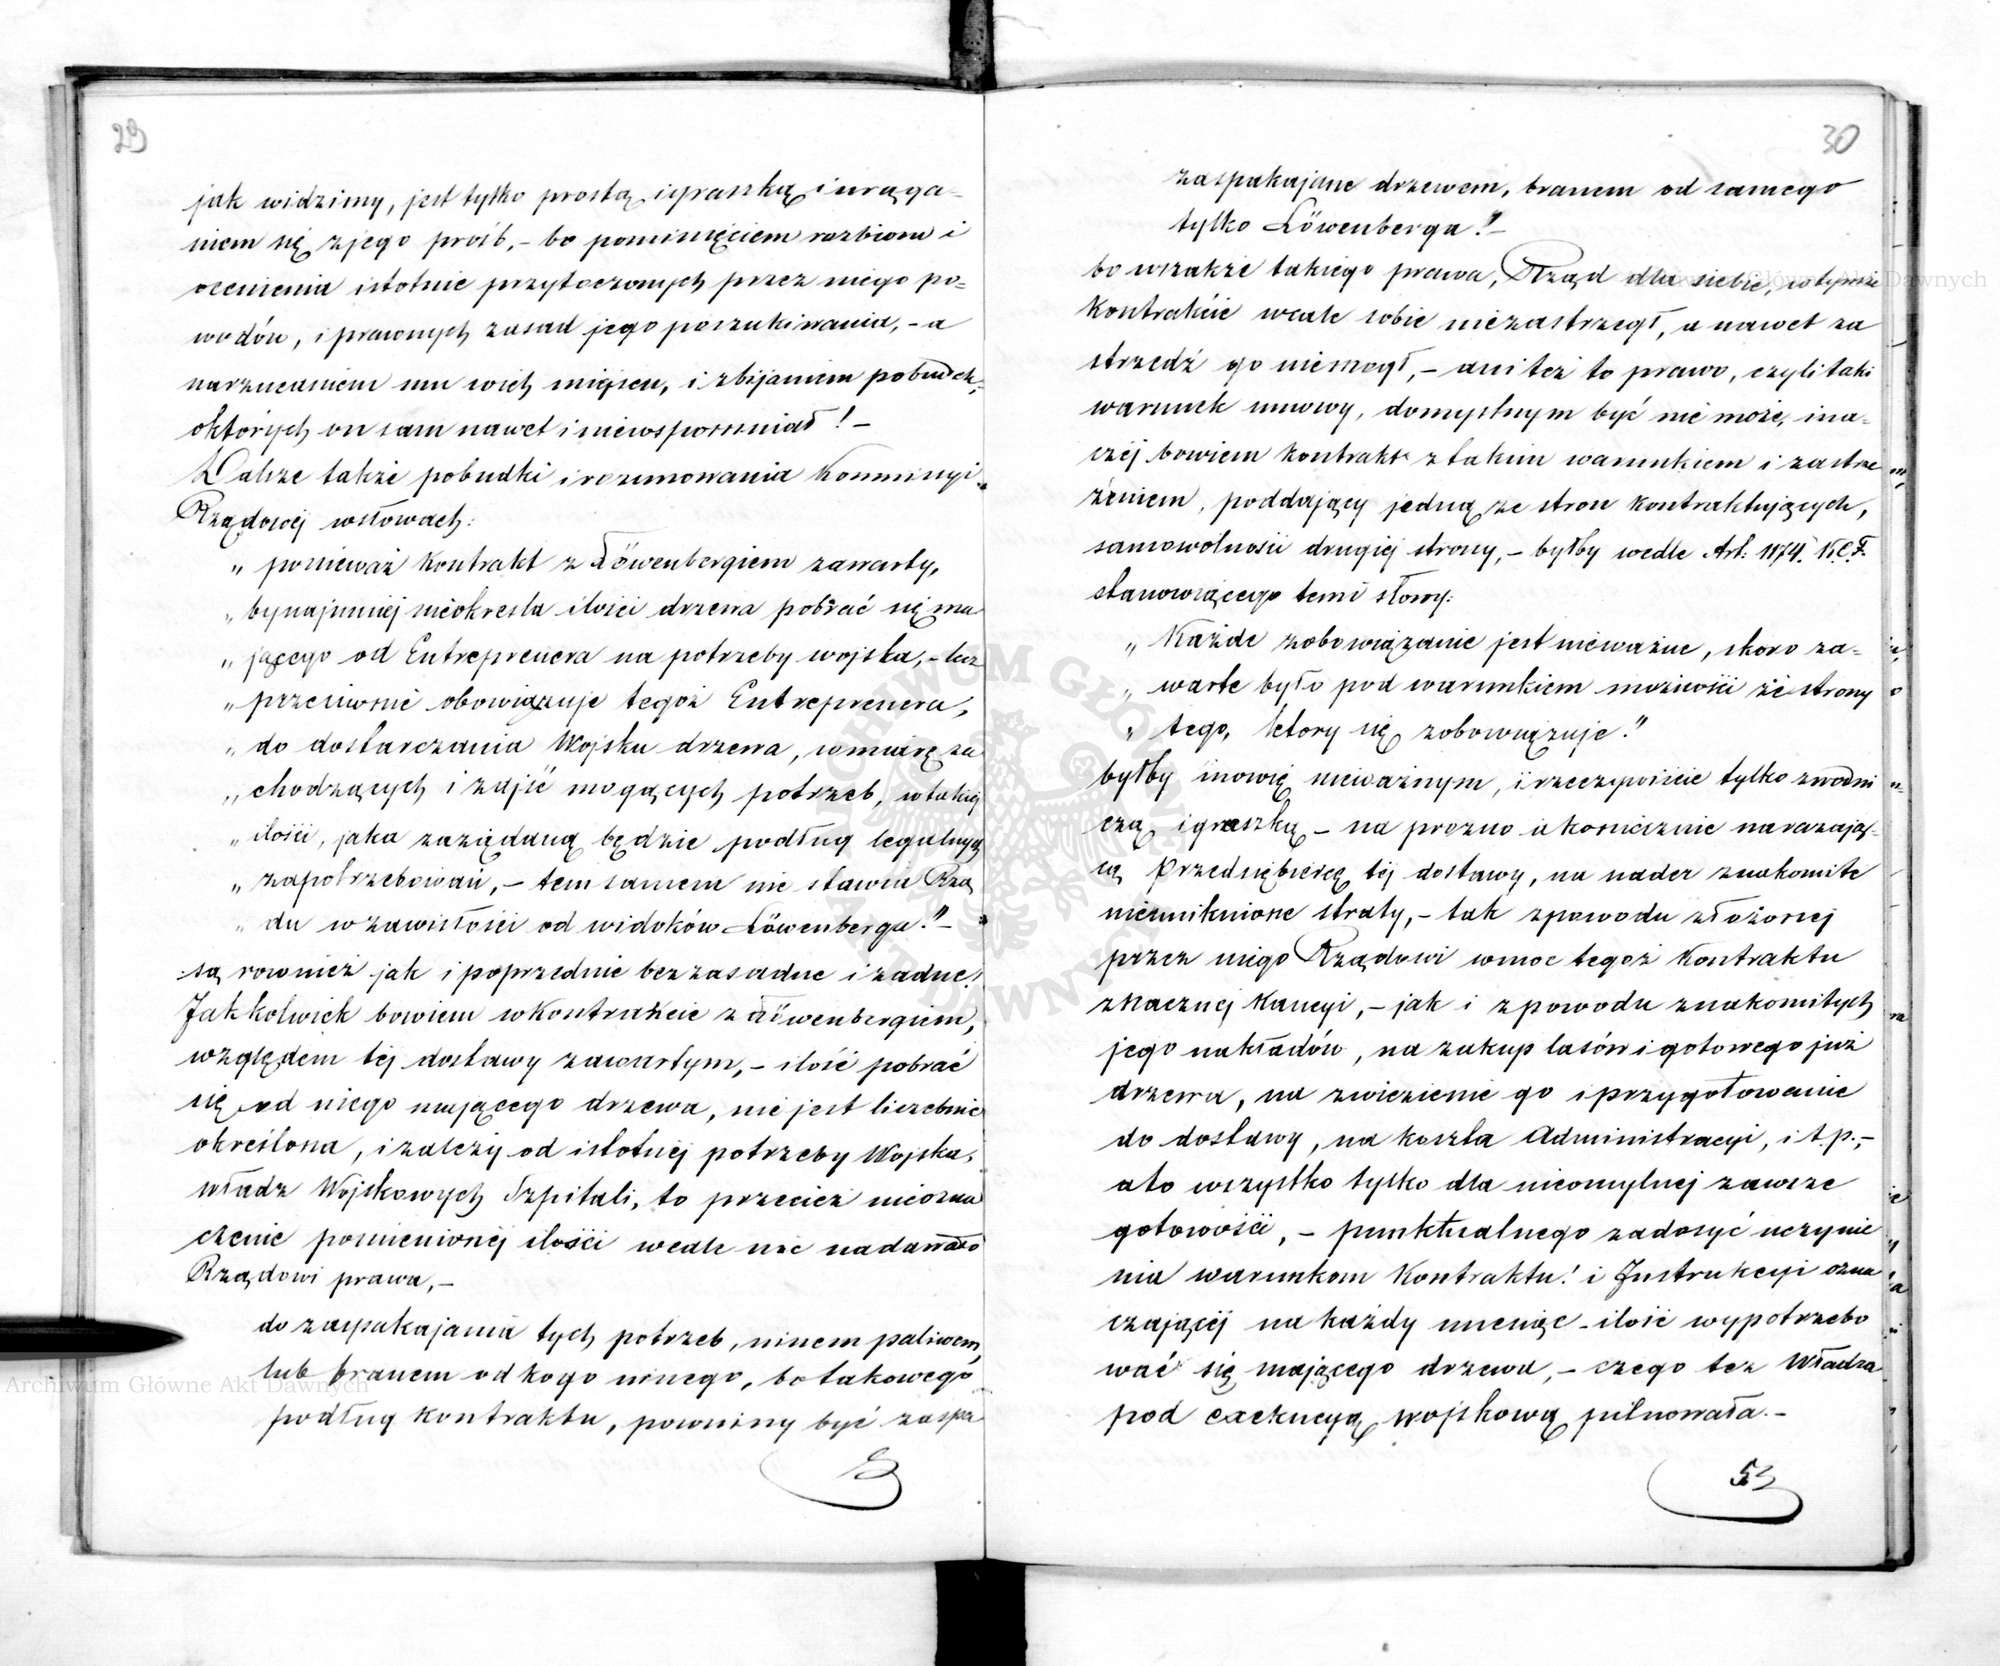 29
jak widzimy, jest tylko prostą igraszką i urąga-
niem się z jego próśb, - bo pominięciem rozbioru i
ocenienia istotnie przytoczonych przez niego po-
wodów, i prawnych zasad jego poszukiwania, - a
narzucaniem mu w ich miejscu, i zbijaniem pobudek,
o których on sam nawet i niewspomniał! -
Dalsze także pobudki i rozumowania Kommissyi
Rządowéj w słowach:
„ ponieważ Kontrakt z Löwenbergiem zawarty,
„ bynajmniej nieokreśla ilości drzewa pobrać się ma
„ jącego od Entreprenera na potrzeby wojska, - lecz
„ przeciwnie obowiązuje tegoż Entreprenera,
„ do dostarczania Wojsku drzewa, w miarę za
„ chodzących i zajść mogących potrzeb, w takiej
„ ilości, jaka zażądaną będzie podług legalnych
„ zapotrzebowań, - tem samem nie stawia Rzą
„ du w zawisłości od widoków Löwenberga!" -
są rownież jak i poprzednie bezzasadne i żadne!
Jakkolwiek bowiem w Kontrakcie z Löwenbergiem,
względem téj dostawy zawartym, - ilość pobrać
się od niego mającego drzewa, nie jest liczebnie
określona, i zależy od istotnéj potrzeby Wojska,
władz Wojskowych Szpitali, to przecież nieozna
czenie pomienionéj ilości wcale nie nadawało
Rządowi prawa, -
do zaspakajania tych potrzeb, innem paliwem,
lub branem od kogo innego, bo takowego
podług Kontraktu, powinny być zaspa
30
zaspakajane drzewem, branem od samego
tylko Löwenberga! -
bo wszakże takiego prawa, Rząd dla siebie, w tymże
Kontrakcie wcale sobie niezastrzegł, a nawet za
strzedz go niemogł, - ani też to prawo, czyli taki
warunek umowy, domyslnym być nie może, ina-
czéj bowiem Kontrakt z takim warunkiem i zastrze
żeniem, poddający jedną ze stron Kontraktujących,
samowolności drugiéj strony, - byłby wedle Art: 1174. K.C.F.
stanowiącego temi słowy:
„ Każde zobowiązanie jest nieważne, skoro za-
„ warte było pod warunkiem możności ze strony
„ tego, ktory się zobowiązuje!"
byłby mowię nieważnym, i rzeczywiście tylko zwodni
czą igraszką - na prozno a koniecznie narażają-
cą Przedsiębiercę téj dostawy, na nader znakomite
nieuniknione straty, - tak z powodu złożonej
przez niego Rządowi w moc tegoż Kontraktu
znacznej Kaucyi, - jak i z powodu znakomitych
jego nakładów, na zakup lasów i gotowego już
drzewa, na zwiezienie go i przygotowanie
do dostawy, na koszta Administracyi, i t.p., -
a to wszystko tylko dla nieomylnej zawsze
gotowości, - punktualnego zadosyć uczynie
nia warunkom Kontraktu! i Instrukcyi ozna
czającéj na każdy miesiąc - ilość wypotrzebo
wać się mającego drzewa, - czego też Władza
pod exekucyą wojskową pilnowała. -